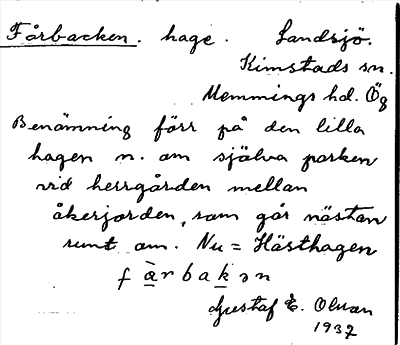 Fårbacken. hage. Landsjö.
Kimstads sn.
Memmings hd. Ög
Benämning förr på den lilla
hagen n. om själva parken
vid herrgården mellan
åkerjorden, som går nästan
runt om. Nu = Hästhagen
f à r b a k ə n
Gustaf E.
1937